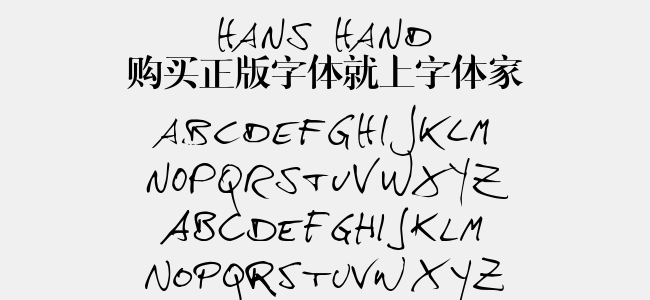 HANS HAND
购买正版字体就上字体家
ABCDEFGHIJKLM
NOPQRSTUVWXYZ
ABCDEFGHIJKLM
NOPQRSTUVWXYZ